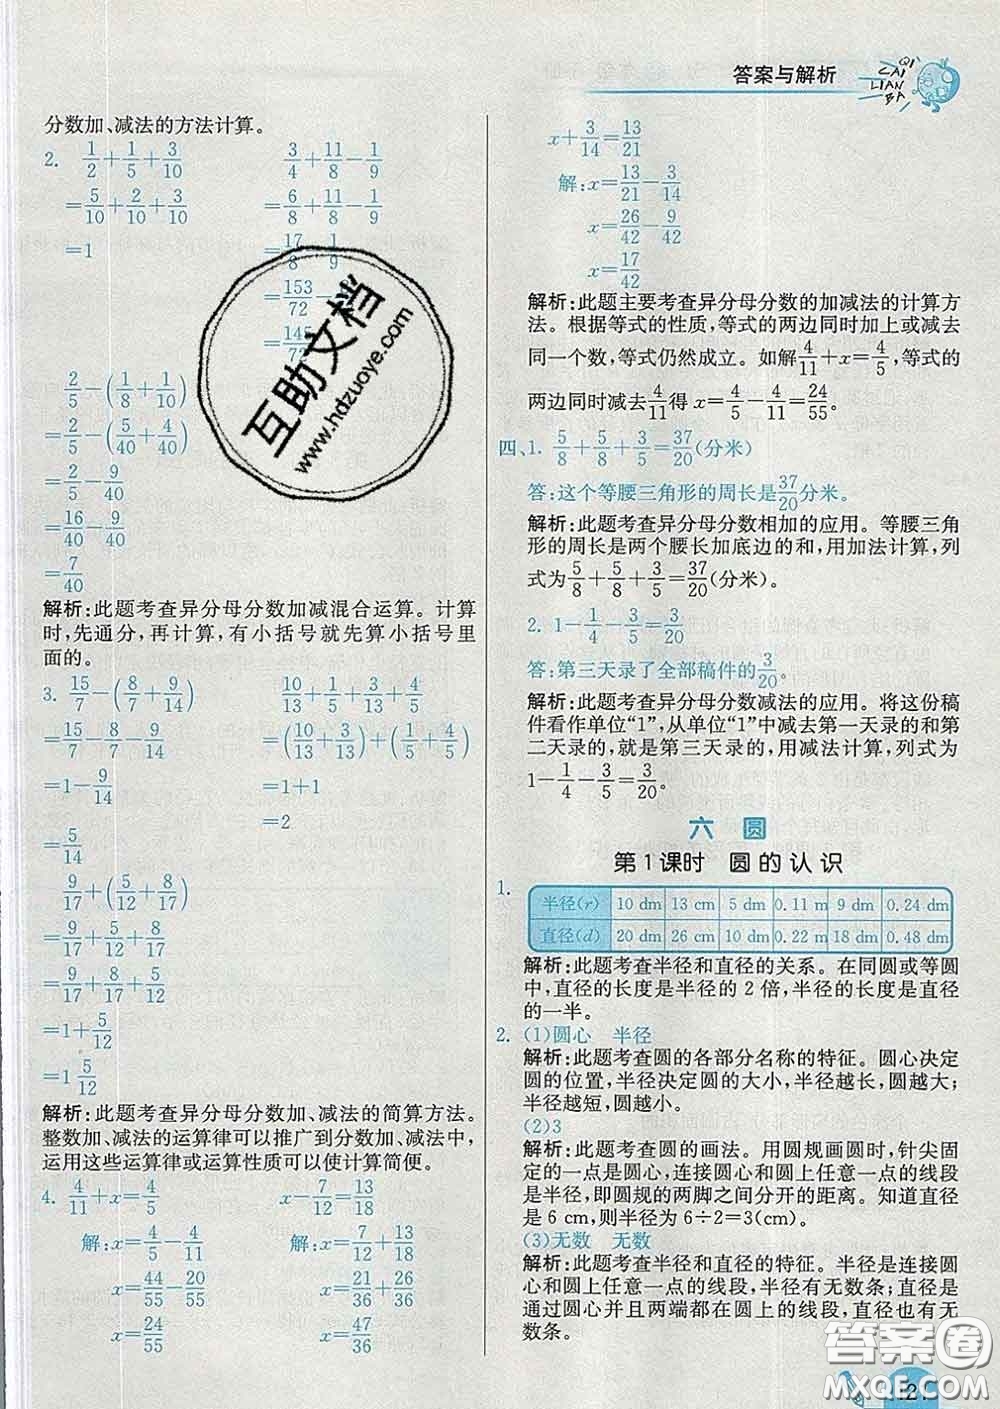 答案与解析
QI
CAI
LIAN
BA
分数加、减法的方法计算。
2. 1/2+1/5+3/10    3/4+11/8-1/9
=5/10+2/10+3/10    =6/8+11/8-1/9
=1    =17/8-1/9
=153/72-
=145/72
2/5-(1/8+1/10)
=2/5-(5/40+4/40)
=2/5-9/40
=16/40-9/40
=7/40
解析:此题考查异分母分数加减混合运算。计算
时,先通分,再计算,有小括号就先算小括号里
面的。
3. 15/7-(8/7+9/14)    10/13+1/5+3/13+4/5
=15/7-8/7-9/14    =(10/13+3/13)+(1/5+4/5)
=1-9/14    =1+1
=5/14    =2
9/17+(5/12+8/17)
=9/17+5/12+8/17
=9/17+8/17+5/12
=1+5/12
=1 5/12
解析:此题考查异分母分数加、减法的简算方法。
整数加、减法的运算律可以推广到分数加、减法中,
运用这些运算律或运算性质可以使计算简便。
4. 4/11+x=4/5    x-7/12=13/18
解:x=4/5-4/11    解:x=7/12+13/18
x=44/55-20/55    x=21/36+26/36
x=24/55    x=47/36
x+3/14=13/21
解:x=13/21-3/14
x=26/42-9/42
x=17/42
解析:此题主要考查异分母分数的加减法的计算方
法。根据等式的性质,等式的两边同时加上或减去
同一个数,等式仍然成立。如解4/11+x=4/5,等式的
两边同时减去4/11得 x=4/5-4/11=24/55。
四、1. 5/8+5/8+3/5=37/20(分米)
答:这个等腰三角形的周长是37/20分米。
解析:此题考查异分母分数相加的应用。等腰三角
形的周长是两个腰长加底边的和,用加法计算,列
式为5/8+5/8+3/5=37/20(分米)。
2. 1-1/4-3/5=3/20
答:第三天录了全部稿件的3/20。
解析:此题考查异分母分数减法的应用。将这份稿
件看作单位“1”,从单位“1”中减去第一天录的和第
二天录的,就是第三天录的,用减法计算,列式为
1-1/4-3/5=3/20。
六 圆
第1课时 圆的认识
1.
半径(r) 10 dm 13 cm 5 dm 0.11 m 9 dm 0.24 dm
直径(d) 20 dm 26 cm 10 dm 0.22 m 18 dm 0.48 dm
解析:此题考查半径和直径的关系。在同圆或等圆
中,直径的长度是半径的 2 倍,半径的长度是直径
的一半。
2. (1)圆心 半径
解析:此题考查圆的各部分名称的特征。圆心决定
圆的位置,半径决定圆的大小,半径越长,圆越大;
半径越短,圆越小。
(2)3
解析:此题考查圆的画法。用圆规画圆时,针尖固
定的一点是圆心,连接圆心和圆上任意一点的线段
是半径,即圆规的两脚之间分开的距离。知道直径
是 6 cm,则半径为 6÷2=3(cm)。
(3)无数 无数
解析:此题考查半径和直径的特征。半径是连接圆
心和圆上任意一点的线段,半径有无数条;直径是
通过圆心并且两端都在圆上的线段,直径也有无
数条。
互助文档
www.hdzuoye.com
答案圈
MXQE.COM